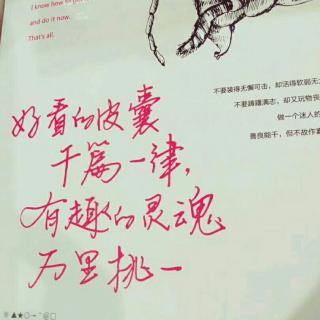 I know how to get
and do it now.
That's all.
不要装得无懈可击，却活得软弱无
不要踌躇满志，却又玩物丧
做一个迷人的
善良能干，但不故作
好看的皮囊
千篇一律，
有趣的灵魂
万里挑一